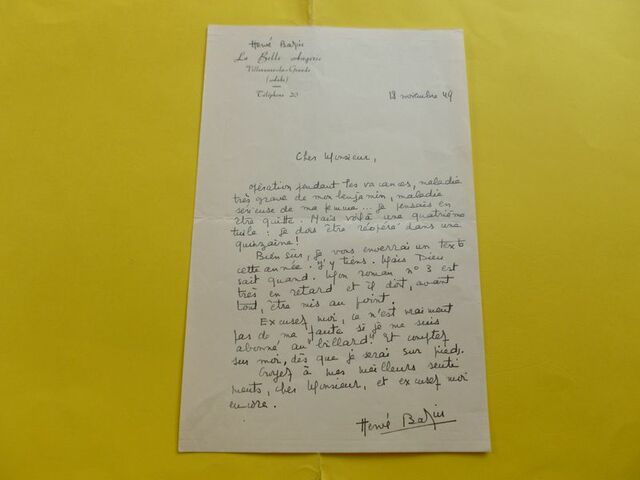 Hervé Bazin
La Belle Angerie
Villenauxe-la-Grande
(Aube)
Téléphone 20
18 novembre 49
Cher Monsieur,
Opération pendant les vacances, maladie
très grave de mon benjamin, maladie
sérieuse de ma femme... je pensais en
être quitte. Mais voilà une quatrième
tuile : je dois être réopéré dans une
quinzaine !
Bien sûr, je vous enverrai un texte
cette année. J'y tiens. Mais Dieu
sait quand. Mon roman n° 3 est
très en retard et il doit, avant
tout, être mis au point.
Excusez moi, ce n'est vraiment
pas de ma faute si je me suis
abonné au billard ! Et comptez
sur moi, dès que je serai sur pieds.
Croyez à mes meilleurs senti
ments, cher Monsieur, et excusez moi
encore.
Hervé Bazin